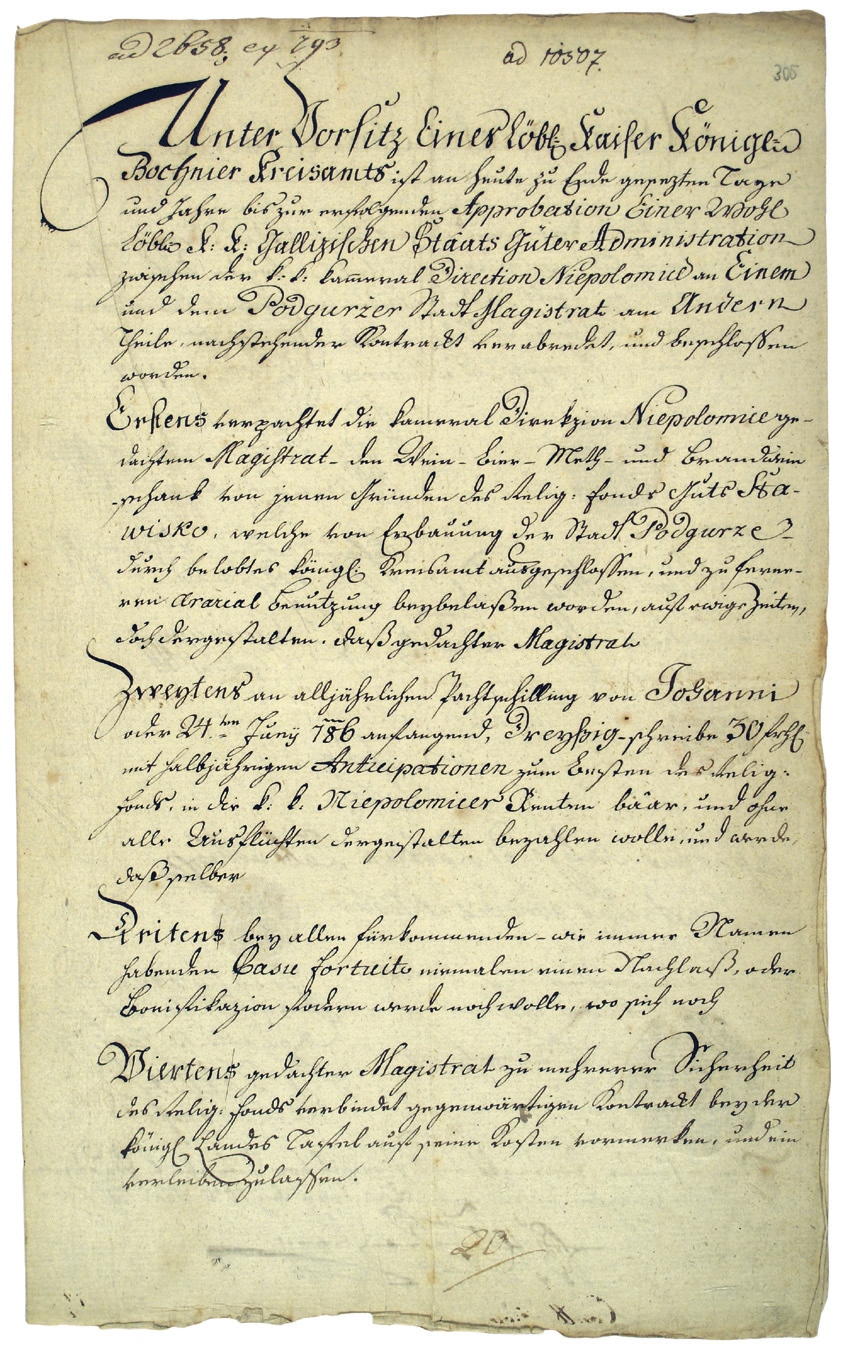 ad 2658; ex 793. ad 10507.
305
Unter Vorsitz Eines Löbl: Kaiser Königln
Bochnier Kreisamts ist an heute zu Ende gesezten Tage
und Jahre bis zur erfolgenden Approbation Einer Wohl
Löbln K: K: Gallizischen Staats Güter Administration
zwischen der k: k: kammeral Direction Niepolomice an Einem
und dem Podgurzer Stadt Magistrat am Andern
Theile, nachstehender Kontrackt verabredet, und beschlossen
worden.
Erstens verpachtet die kameral Direkzion Niepolomice ge-
dachtem Magistrat - den Wein - Bier - Meth - und Brandwein
-schank von jenen Gründen des Relig: Fonds Guts Sta-
wisko, welche von Erbauung der Stadt Podgurze
durch belobtes köingl: Kreisamt ausgeschlossen, und zu ferne-
ren Ararial Benutzung beybelaßen worden, auf ewige Zeiten,
doch dergestalten, daß gedachter Magistrat
Zweytens an alljährlichen Pachtschilling von Johanni
oder 24ten Juny 786 anfangend, Dreyßig - schreibe 30 fRh:
mit halbjährigen Anticipationen zum Besten des Relig:
Fonds, in die k: k: Niepolomicer Renten báar, und ohne
alle Ausflüchten dergestalten bezahlen wolle, und werde,
daß selber
Dritens bey allen fürkommenden - wie immer Namen
habenden Casu fortuito niemalen einen Nachlaß, oder
Bonifikazion fodern werde noch wolle, wo sich noch
Viertens gedachter Magistrat zu mehrerer Sicherheit
des Relig: Fonds verbindet gegenwärtigen Kontrackt bey der
königl Landes Taffel auf seine Kosten vormerken, und ein
verleiben zulassen.
20